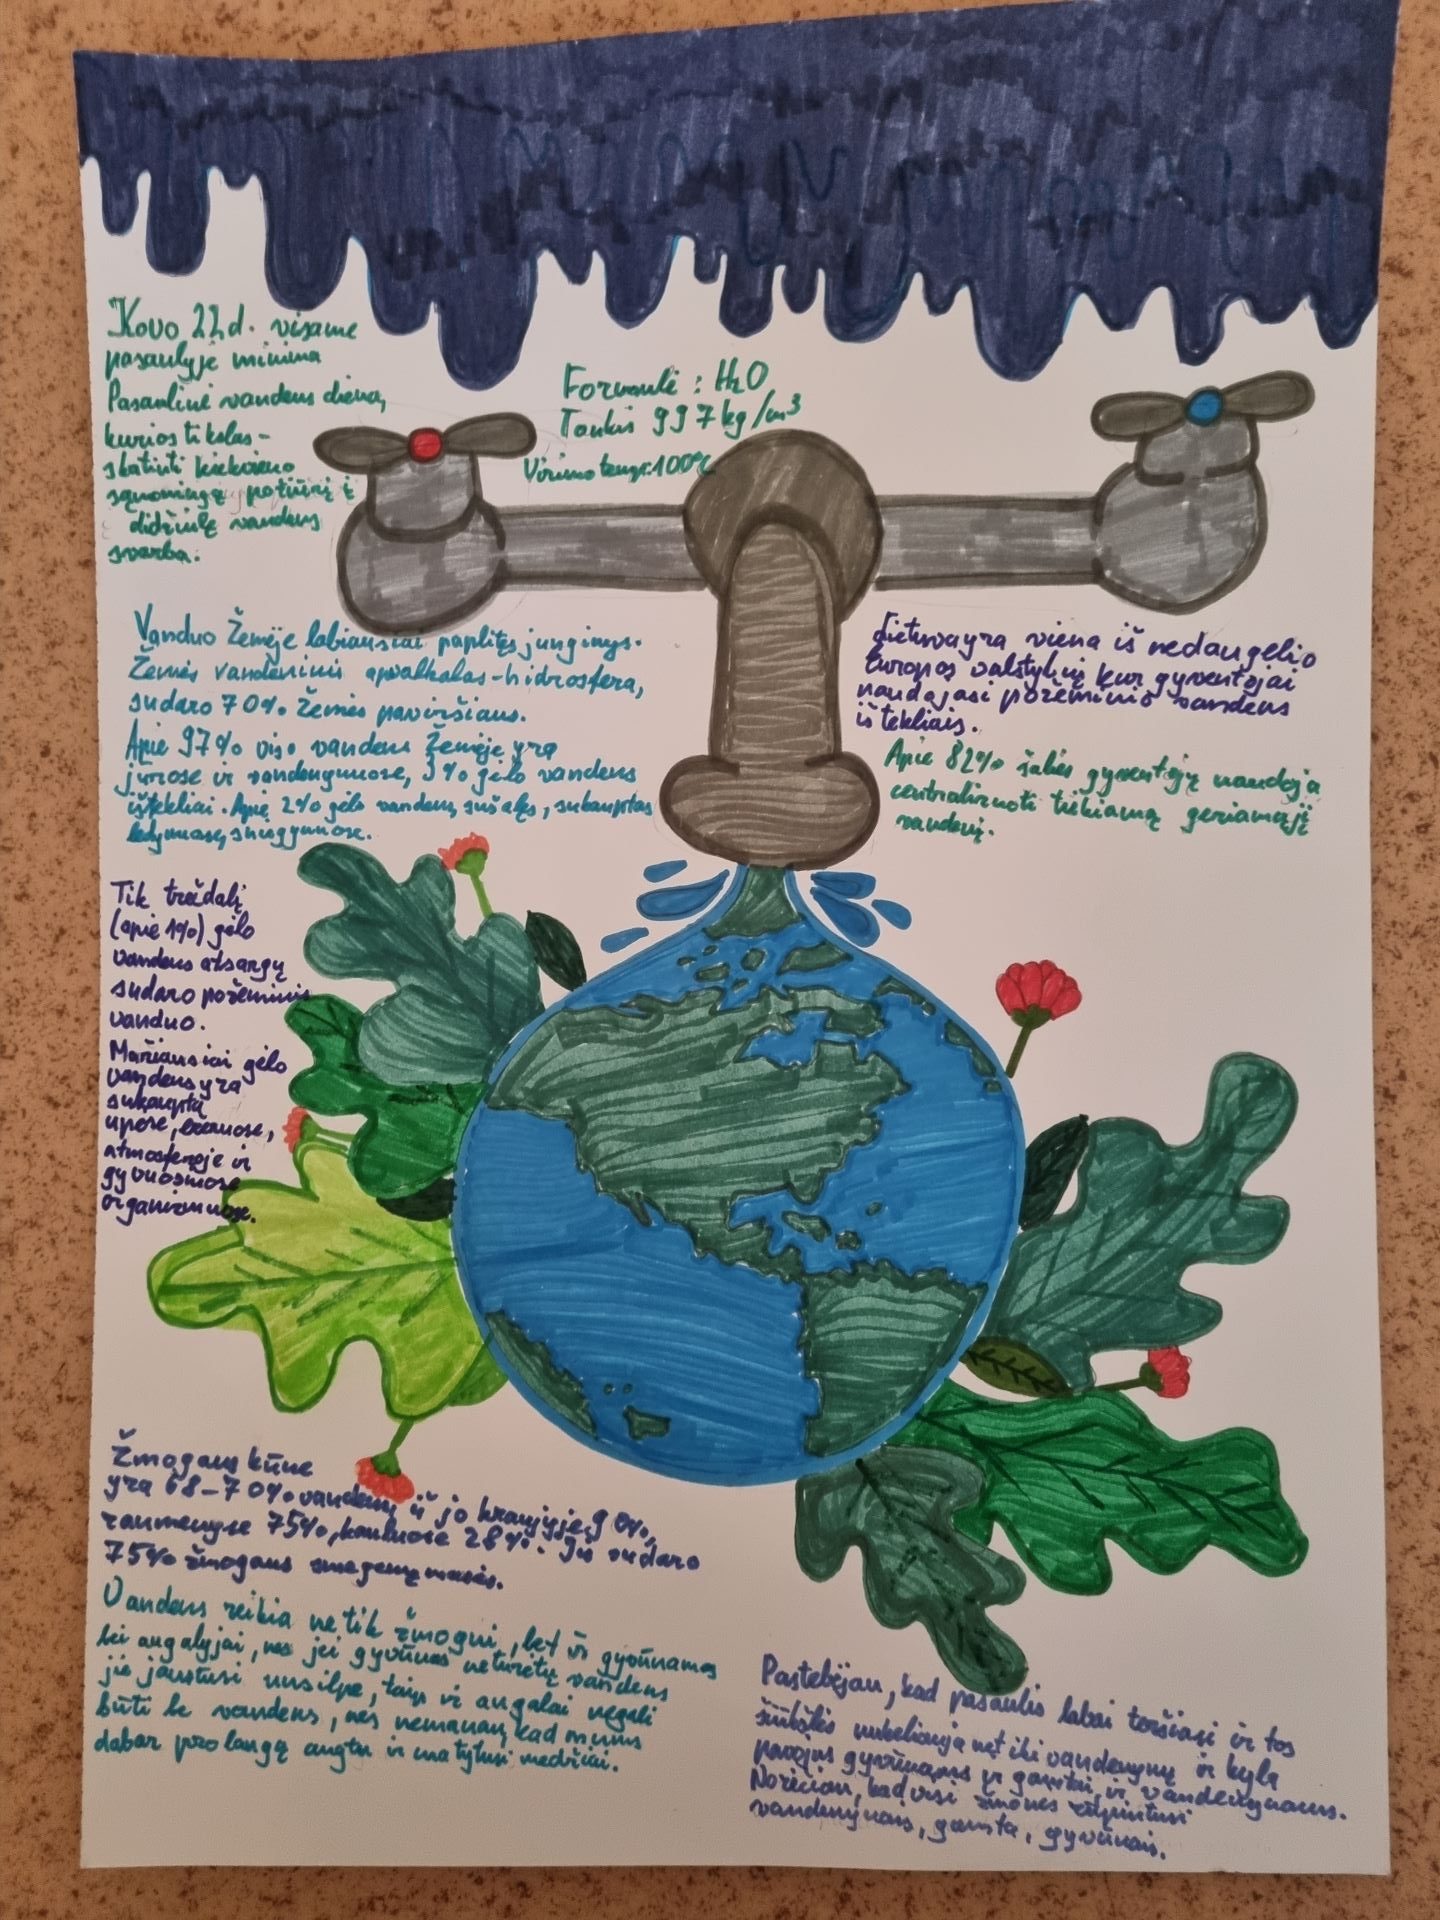 Kovo 22 d. visame
pasaulyje minima
Pasaulinė vandens diena,
kurios tikslas -
skatinti kiekvieno
sąmoningą požiūrį į
didžiulę vandens
svarbą.
Formulė : H2O
Tankis 997 kg/m³
Virimo temp.:100°C
Vanduo Žemėje labiausiai paplitęs junginys.
Žemės vandeninis apvalkalas-hidrosfera,
sudaro 70% Žemės paviršiaus.
Apie 97% viso vandens Žemėje yra
jūrose ir vandenynuose, 3% gėlo vandens
ištekliai. Apie 2% gėlo vandens sušalęs, sukauptas
ledynuose, sniegynuose.
Lietuva yra viena iš nedaugelio
Europos valstybių kur gyventojai
naudojasi požeminio vandens
ištekliais.
Apie 82% šalies gyventojų naudoja
centralizuoti tiekiamą geriamąjį
vandenį.
Tik trečdalį
(apie 1%) gėlo
vandens atsargų
sudaro požeminis
vanduo.
Mažiausiai gėlo
vandens yra
sukauptą
upėse, ežeruose,
atmosferoje ir
gyvuosiuose
organizmuose.
Žmogaus kūne
yra 68-70% vandens iš jo kraujyje 90%,
raumenyse 75%, kauluose 28%. Jis sudaro
75% žmogaus smegenų masės.
Vandens reikia ne tik žmogui, bet ir gyvūnams
bei augalyjai, nes jei gyvūnas neturėtų vandens
jis jaustusi nusilpę, taip ir augalai negali
būti be vandens, nes nemanau, kad mums
dabar pro langą augtu ir matytusi medžiai.
Pastebėjau, kad pasaulis labai teršiasi ir tos
šiukšlės nukeliauja net iki vandenynų ir kyla
pavojus gyvūnams ir gamtai, ir vandenynams.
Norėčiau, kad visi žmonės rūpintusi
vandenynais, gamta, gyvūnais.